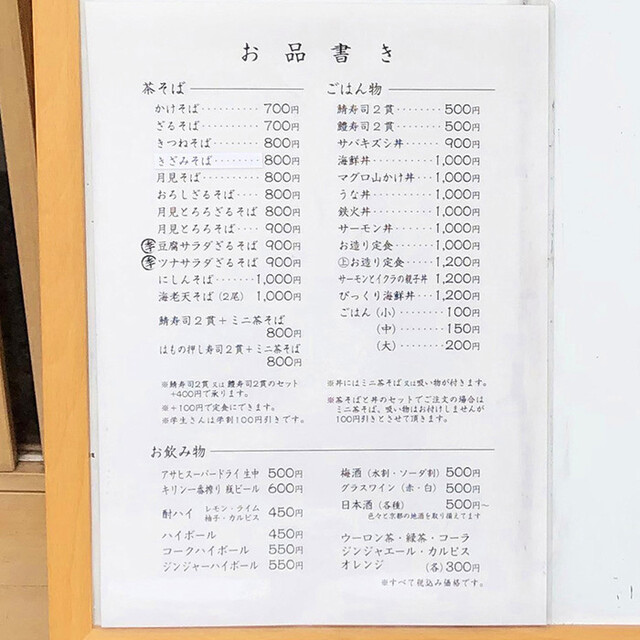 お品書き
茶そば
かけそば・・・・・・・・・・700円
ざるそば・・・・・・・・・・700円
きつねそば・・・・・・・・800円
きざみそば・・・・・・・・800円
月見そば・・・・・・・・・・800円
おろしざるそば・・・・800円
月見とろろざるそば 800円
月見とろろそば・・・・900円
季 豆腐サラダざるそば 900円
季 ツナサラダざるそば 900円
にしんそば・・・・・・1,000円
海老天そば（2尾） 1,000円
鯖寿司2貫＋ミニ茶そば
800円
はもの押し寿司2貫＋ミニ茶そば
800円
※鯖寿司2貫 又は 鱧寿司2貫のセット
＋400円で承ります。
※＋100円で定食にできます。
※学生さんは学割100円引きです。
ごはん物
鯖寿司2貫・・・・・・・・500円
鱧寿司2貫・・・・・・・・500円
サバキズシ丼・・・・・・900円
海鮮丼・・・・・・・・・・1,000円
マグロ山かけ丼・・・1,000円
うな丼・・・・・・・・・・1,000円
鉄火丼・・・・・・・・・・1,000円
サーモン丼・・・・・・1,000円
お造り定食・・・・・・1,000円
上お造り定食・・・・・1,200円
サーモンとイクラの親子丼 1,200円
びっくり海鮮丼・・・1,200円
ごはん（小）・・・・・・・100円
（中）・・・・・・・150円
（大）・・・・・・・200円
※丼にはミニ茶そば 又は 吸い物が付きます。
※茶そばと丼のセットでご注文の場合は
ミニ茶そば、吸い物はお付けしませんが
100円引きとさせて頂きます。
お飲み物
アサヒスーパードライ 生中 500円
キリン一番搾り 瓶ビール 600円
酎ハイ レモン・ライム 柚子・カルピス 450円
ハイボール 450円
コークハイボール 550円
ジンジャーハイボール 550円
梅酒（水割・ソーダ割）500円
グラスワイン（赤・白）500円
日本酒（各種） 500円〜
色々と京都の地酒を取り揃えてます
ウーロン茶・緑茶・コーラ
ジンジャエール・カルピス
オレンジ （各）300円
※すべて税込み価格です。